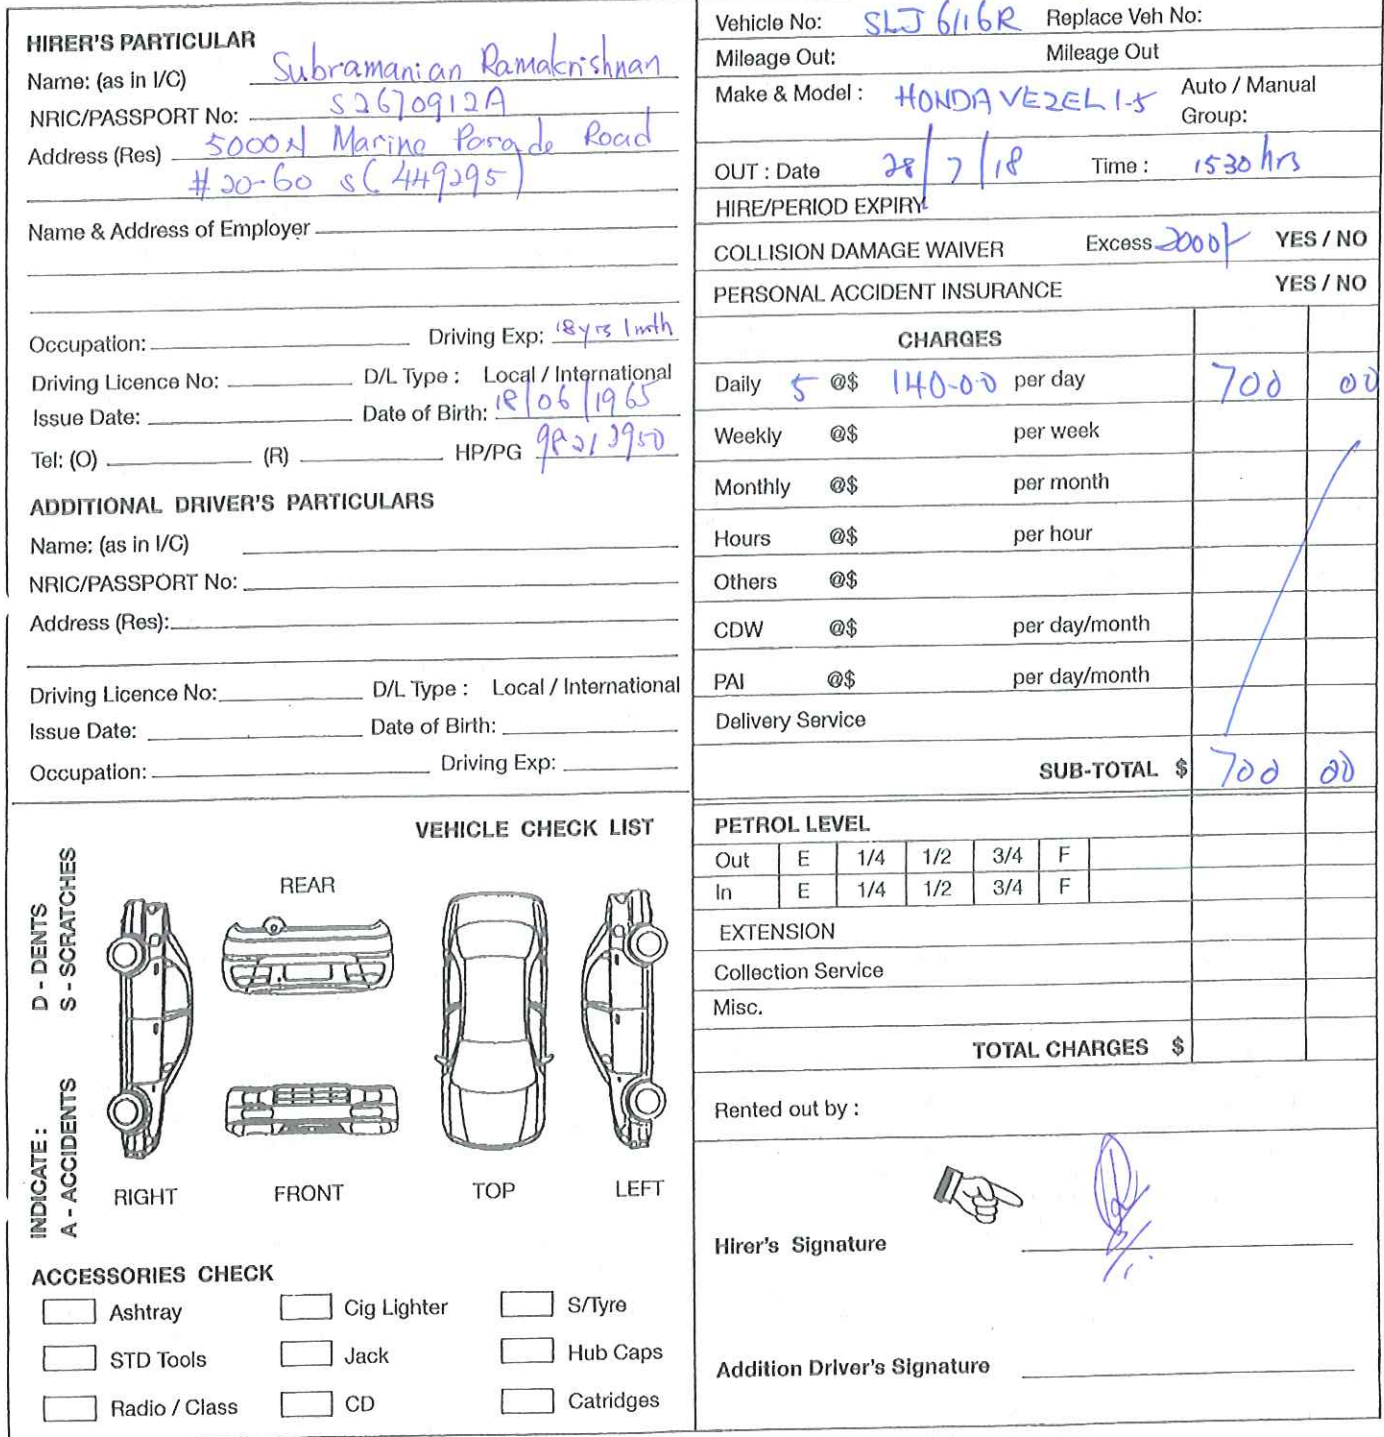 HIRER'S PARTICULAR
Name: (as in I/C) Subramanian Ramakrishnan
NRIC/PASSPORT No: S2670912A
Address (Res) 5000N Marine Parade Road
#20-60 S(449295)
Name & Address of Employer
Occupation: Driving Exp: 18yrs 1mth
Driving Licence No: D/L Type : Local / International
Issue Date: Date of Birth: 18/06/1965
Tel: (O) (R) HP/PG
ADDITIONAL DRIVER'S PARTICULARS
Name: (as in I/C)
NRIC/PASSPORT No:
Address (Res):
Driving Licence No: D/L Type : Local / International
Issue Date: Date of Birth:
Occupation: Driving Exp:
VEHICLE CHECK LIST
INDICATE :
D - DENTS
S - SCRATCHES
A - ACCIDENTS
REAR
RIGHT FRONT TOP LEFT
ACCESSORIES CHECK
Ashtray Cig Lighter S/Tyre
STD Tools Jack Hub Caps
Radio / Class CD Catridges
Vehicle No: SLJ 6116R Replace Veh No:
Mileage Out: Mileage Out
Make & Model : HONDA VEZEL 1.5 Auto / Manual
Group:
OUT : Date 28/7/18 Time : 1530 hrs
HIRE/PERIOD EXPIRY
COLLISION DAMAGE WAIVER Excess 2000/- YES / NO
PERSONAL ACCIDENT INSURANCE YES / NO
CHARGES
Daily 5 @$ 140-00 per day 700 00
Weekly @$ per week
Monthly @$ per month
Hours @$ per hour
Others @$
CDW @$ per day/month
PAI @$ per day/month
Delivery Service
SUB-TOTAL $ 700 00
PETROL LEVEL
Out E 1/4 1/2 3/4 F
In E 1/4 1/2 3/4 F
EXTENSION
Collection Service
Misc.
TOTAL CHARGES $
Rented out by :
Hirer's Signature
Addition Driver's Signature